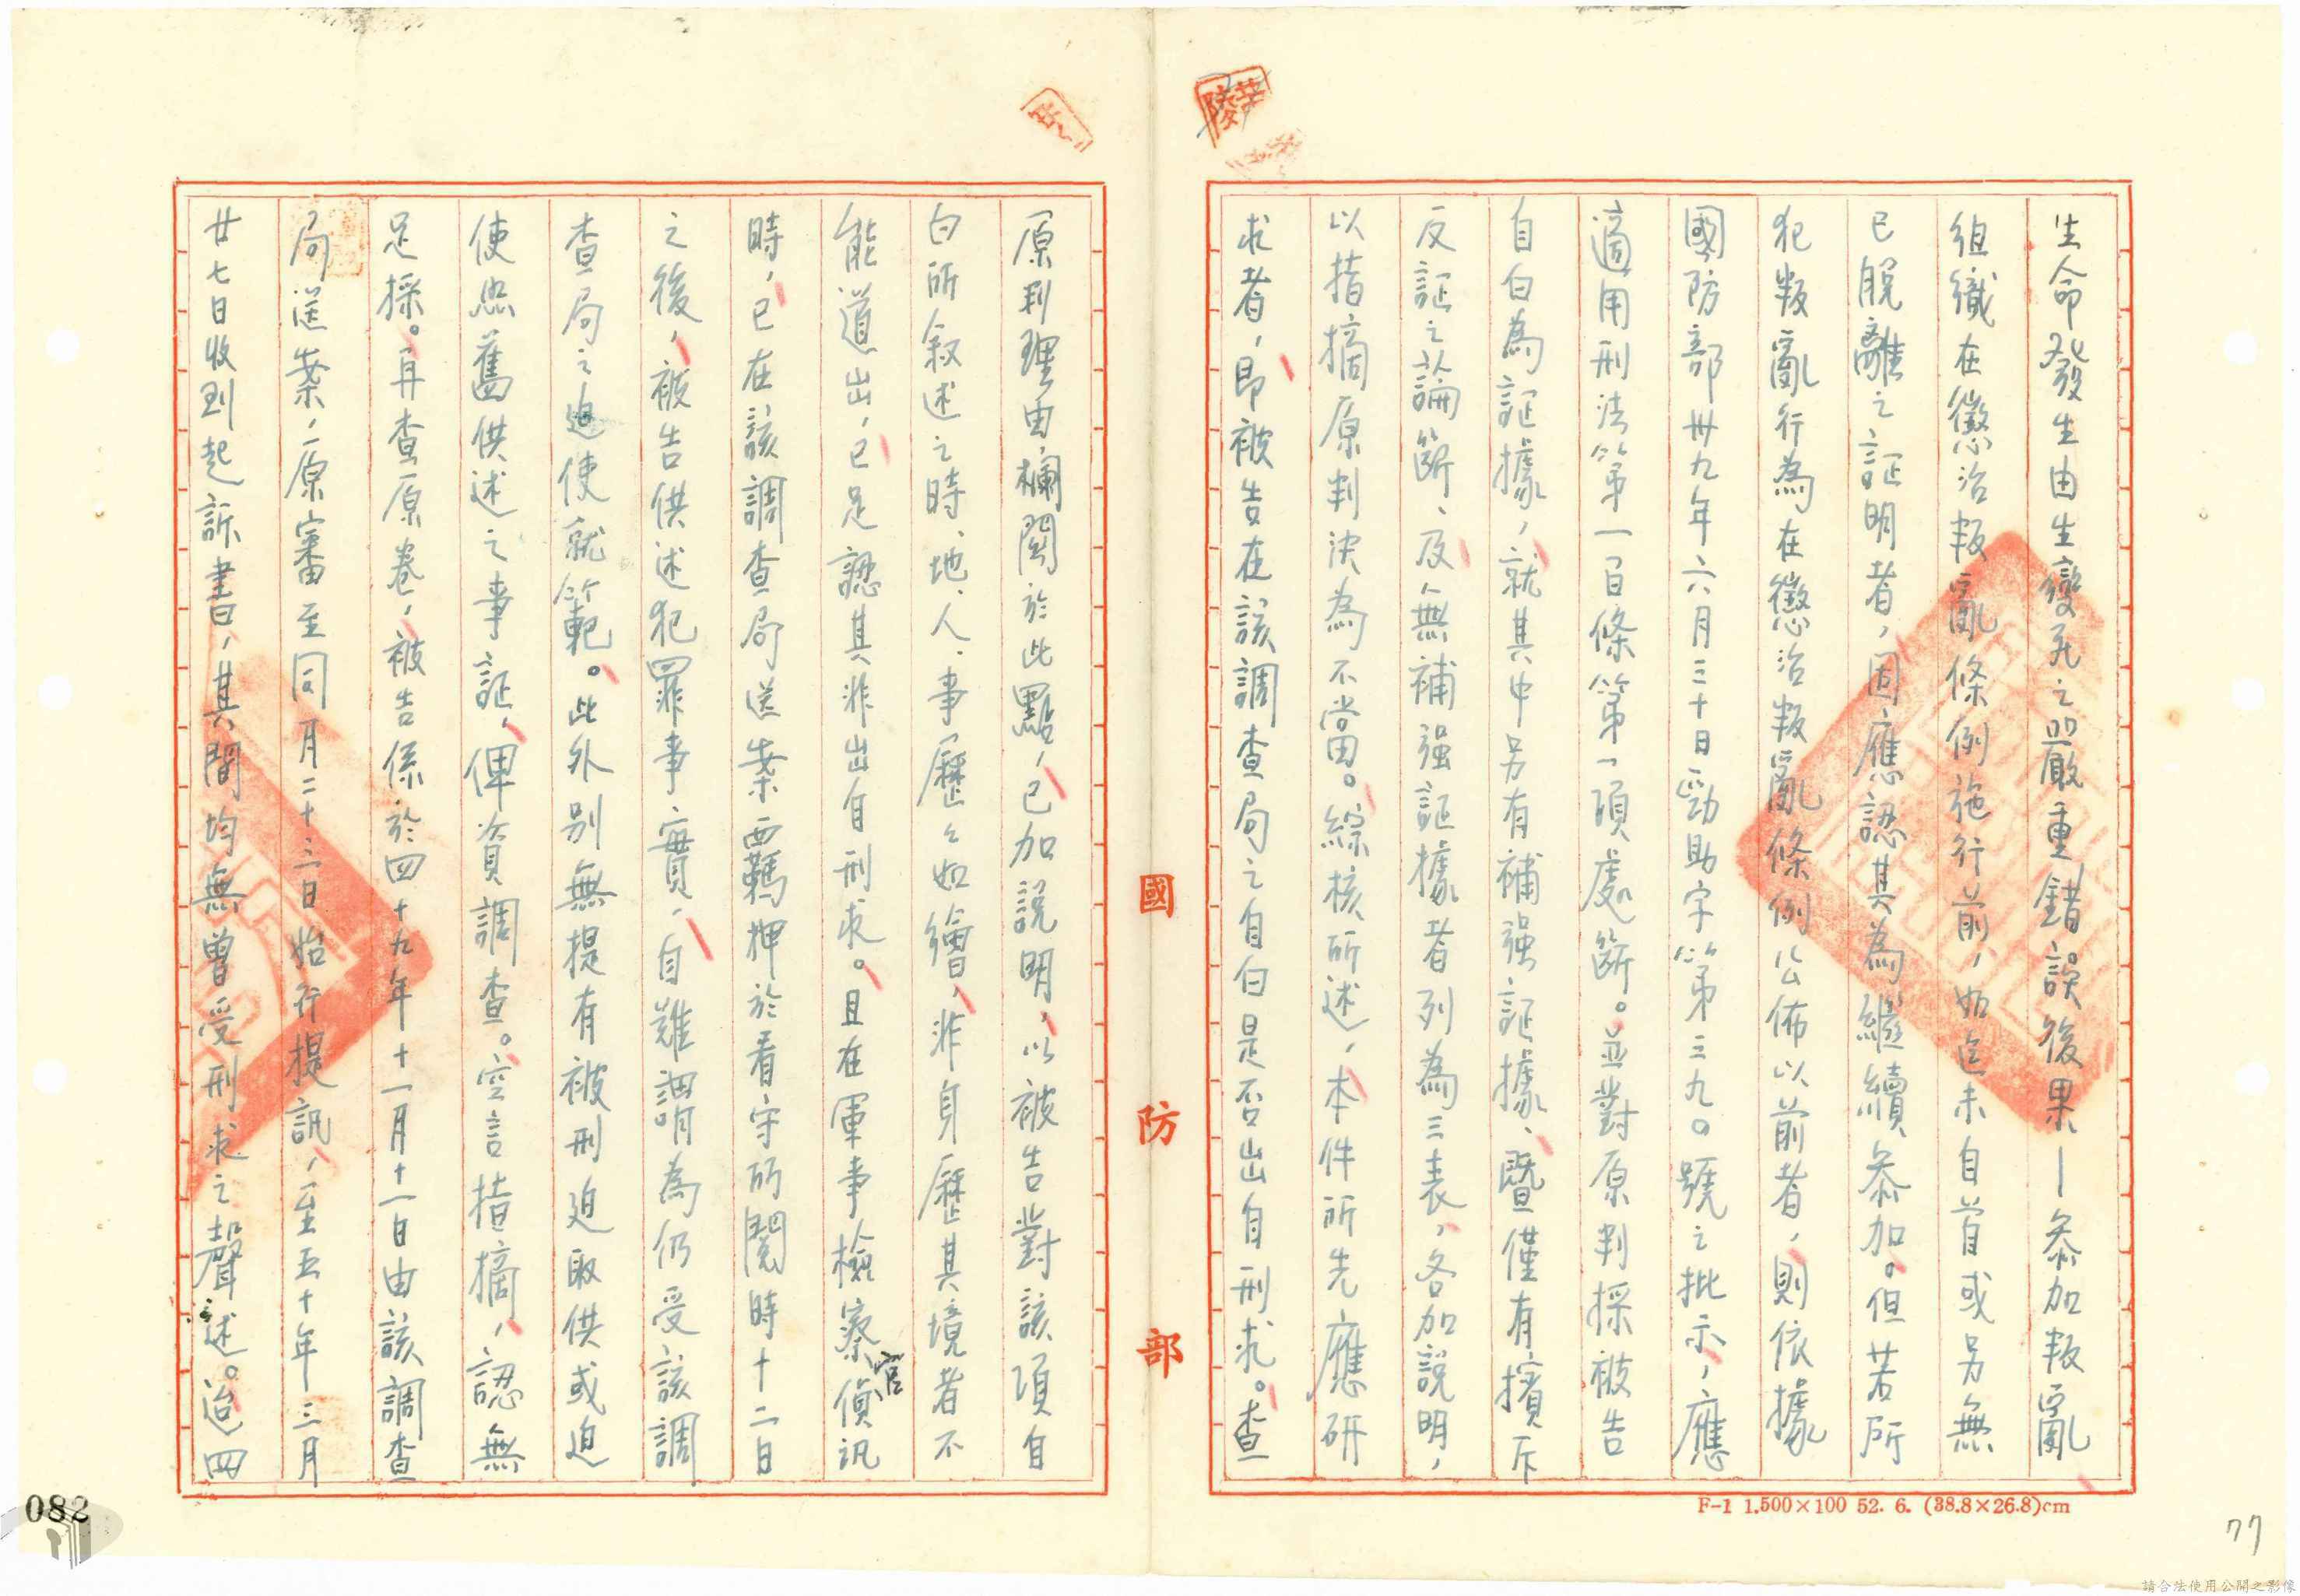 生命發生由生變死之嚴重錯誤後果—參加叛亂
組織在懲治叛亂條例施行前,如迄未自首或另無
已脫離之証明者,固應認其為繼續參加。但若所
犯叛亂行為在懲治叛亂條例公佈以前者,則依據
國防部卅九年六月三十日勁助字第三九〇號之批示,應
適用刑法第一百條第一項處斷。並對原判採被告
自白為証據,就其中另有補强証據、暨僅有擯斥
反証之論斷、及無補强証據者列為三表,各加說明,
以指摘原判決為不當。綜核所述,本件所先應研
求者,即被告在該調查局之自白是否出自刑求。查
國防部
原判理由欄關於此點,已加說明,以被告對該項自
白所叙述之時、地、人、事歷々如繪,非身歷其境者不
能道出,已足認其非出自刑求。且在軍事檢察官偵訊
時,已在該調查局送案西羈押於看守所閱時十二日
之後,被告供述犯罪事實,自難謂為仍受該調
查局之迫使就範。此外別無提有被刑迫取供或迫
使照舊供述之事証,俾資調查。空言指摘,認無
足採。再查原卷,被告係於四十九年十一月十一日由該調查
局送案,原審至同月二十三日始行提訊,至五十年三月
廿七日收到起訴書,其間均無曾受刑求之聲述。迨四
F-1 1.500×100 52. 6. (38.8×26.8)cm
082
77
請合法使用公開之影像